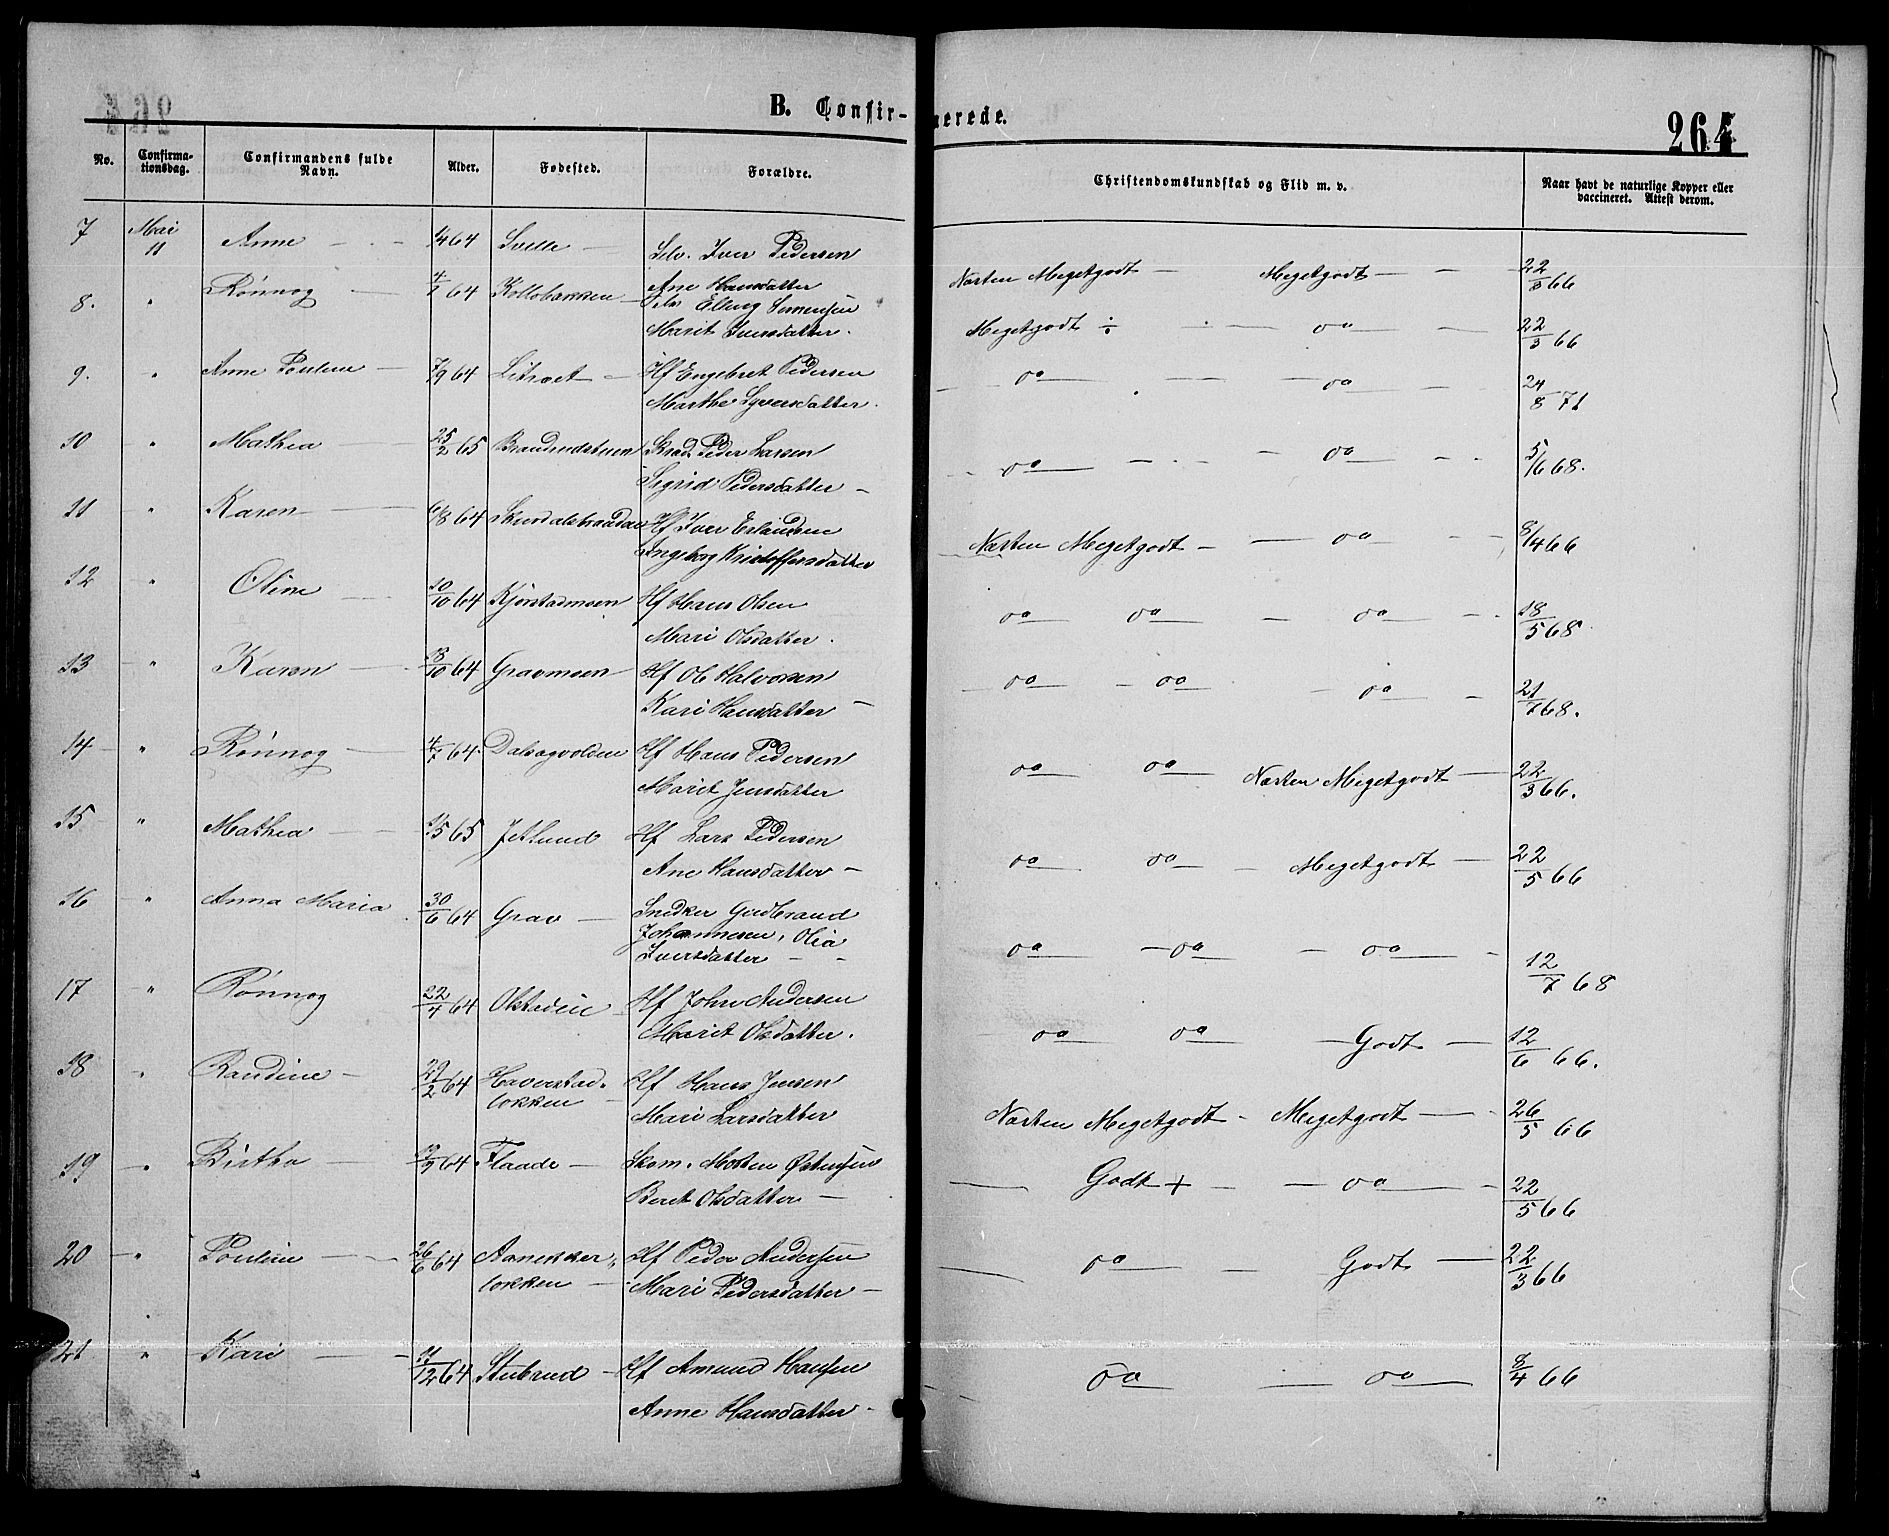 B. Confir-
merede.
264
No.
Confirma-
tionsdag.
Confirmandens fulde
Navn.
Alder.
Fødested.
Forældre.
Christendomskundskab og Flid m. v.
Naar havt de naturlige Kopper eller
vaccineret. Attest derom.
7 Mai 11 Anne 1/4 64 Svelle Selv. Iver Pedersen
Ane Hansdatter
Næsten Megetgodt — Megetgodt — 22/3 66
8. " Rønnog 4/1 64 Kollobakken Selv Elling Simensen
Marit Iversdatter.
Megetgodt ÷ — oo — 22/3 66
9. " Anne Pouline 7/9 64 Litraet Hf Engebret Pedersen
Marthe Syversdatter.
oo — oo — 24/8 71
10 " Mathea 25/2 65 Brandrudstuen Skræd. Peder Larsen
Sigrid Pedersdatter —
oo — oo — 5/6 68.
11 " Karen 6/8 64 Hf Iver Erlandsen
Ingeborg Kristoffersdatter
Næsten Megetgodt — oo — 8/4 66
12 " Oline 10/10 64 Kjørstadmoen Hf Hans Olsen
Mari Olsdatter.
oo oo — oo — 18/5 68
13 " Karen 18/10 64 Gravmoen Hf Ole Halvorsen
Kari Hansdatter —
oo — oo — oo — 21/7 68.
14 " Rønnog 4/7 64 Dalsegvolden Hf Hans Pedersen
Marit Jensdatter
oo oo Næsten Megetgodt — 22/3 66.
15 " Mathea 1/5 65 Jetlund Hf Lars Pedersen
Ane Hansdatter —
oo oo — Megetgodt — 22/5 66
16 " Anna Maria 30/6 64 Grav — Snedker Gudbrand
Johannesen, Olia
Iversdatter —
oo — oo — oo — 12/7 68
17 " Rønnog 22/4 64 Olstadeie Hf John Andersen
Marit Olsdatter.
oo oo — Godt — 12/6 66.
18 " Randine — 29/2 64 Haverstad-
løkken — Hf Hans Jensen
Mari Larsdatter
Næsten Megetgodt — Megetgodt — 26/5 66
19 " Birthe — 64 Flaade — Skom. Morten Østensen
Beret Olsdatter —
Godt + — oo — 22/5 66
20 " Pouline — 26/6 64 Aanekker-
løkken — Hf Peder Andersen
Mari Pedersdatter —
oo — Godt — 22/3 66
21 " Kari — 11/12 64 Stubrud — Hf Amund Hansen
Anne Hansdatter —
oo — oo — 8/4 66